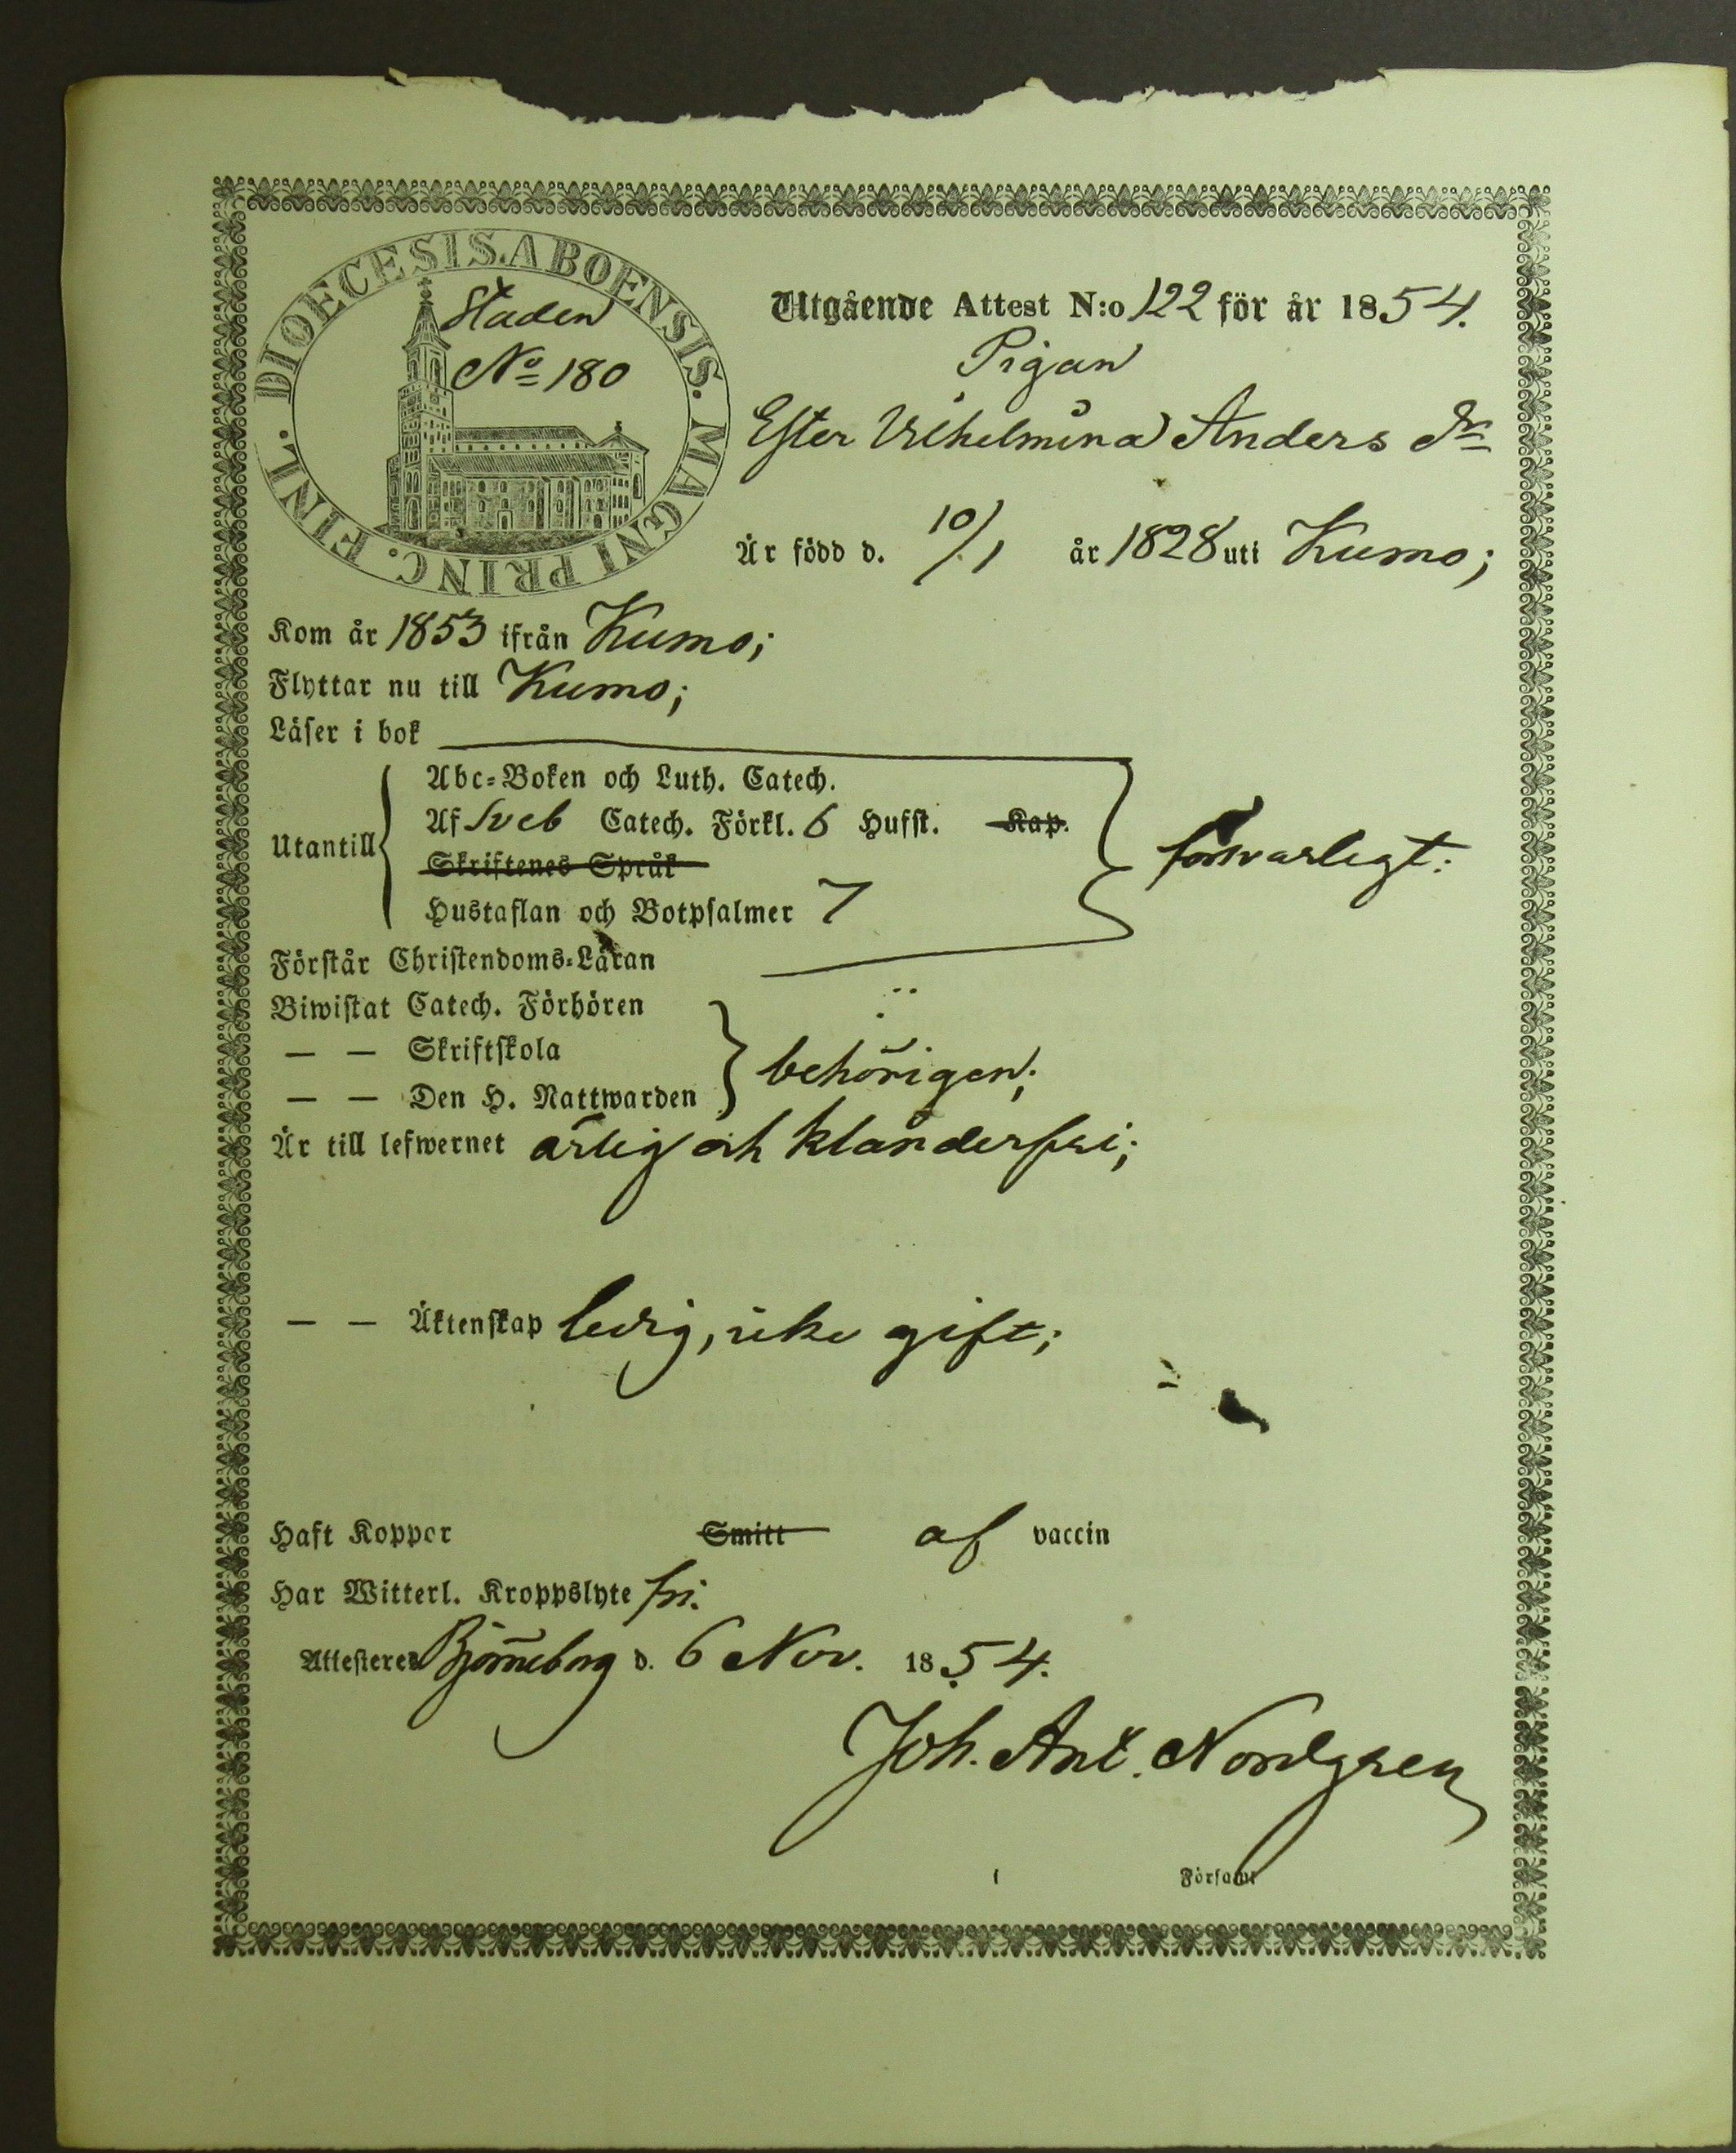 DIOECESIS. ABOENSIS. MAGNI PRINC. FINL.
Staden
No 180
Utgående Attest N:o 122 för år 1854.
Pigan
Ester Vilhelmina Anders Dr
Är född d. 10/1 år 1828 uti Kumo;
Kom år 1853 ifrån Kumo;
Flyttar nu till Kumo;
Läser i bok
Abc-Boken och Luth. Catech.
Utantill
Af Sveb Catech. Förkl. 6 Hufst. Kap.
Skriftenes Språk
försvarligt:
Hustaflan och Botpsalmer 7
Förstår Christendoms-Läran
Biwistat Catech. Förhören
— — Skriftskola
behörigen;
— — Den H. Nattwarden
Är till lefwernet ärlig och klanderfri;
— — Äktenskap ledig, icke gift;
Haft Koppor Smitt af vaccin
Har Witterl. Kroppslyte fri.
Attesteres Björneborg d. 6 Nov. 1854.
Joh. Ant. Nordgren
i Församl